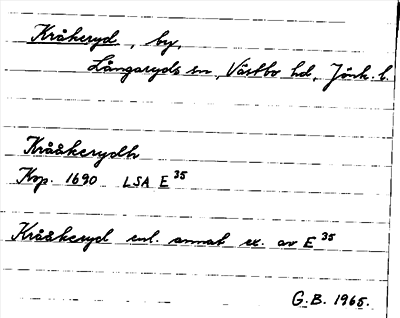 Kråkeryd, by,
Långaryds sn, Västbo hd, Jönk. l.
Krååkerydh
Kop. 1690 LSA E 35
Krååkeryd enl. annat ex. av E 35
G.B. 1965.